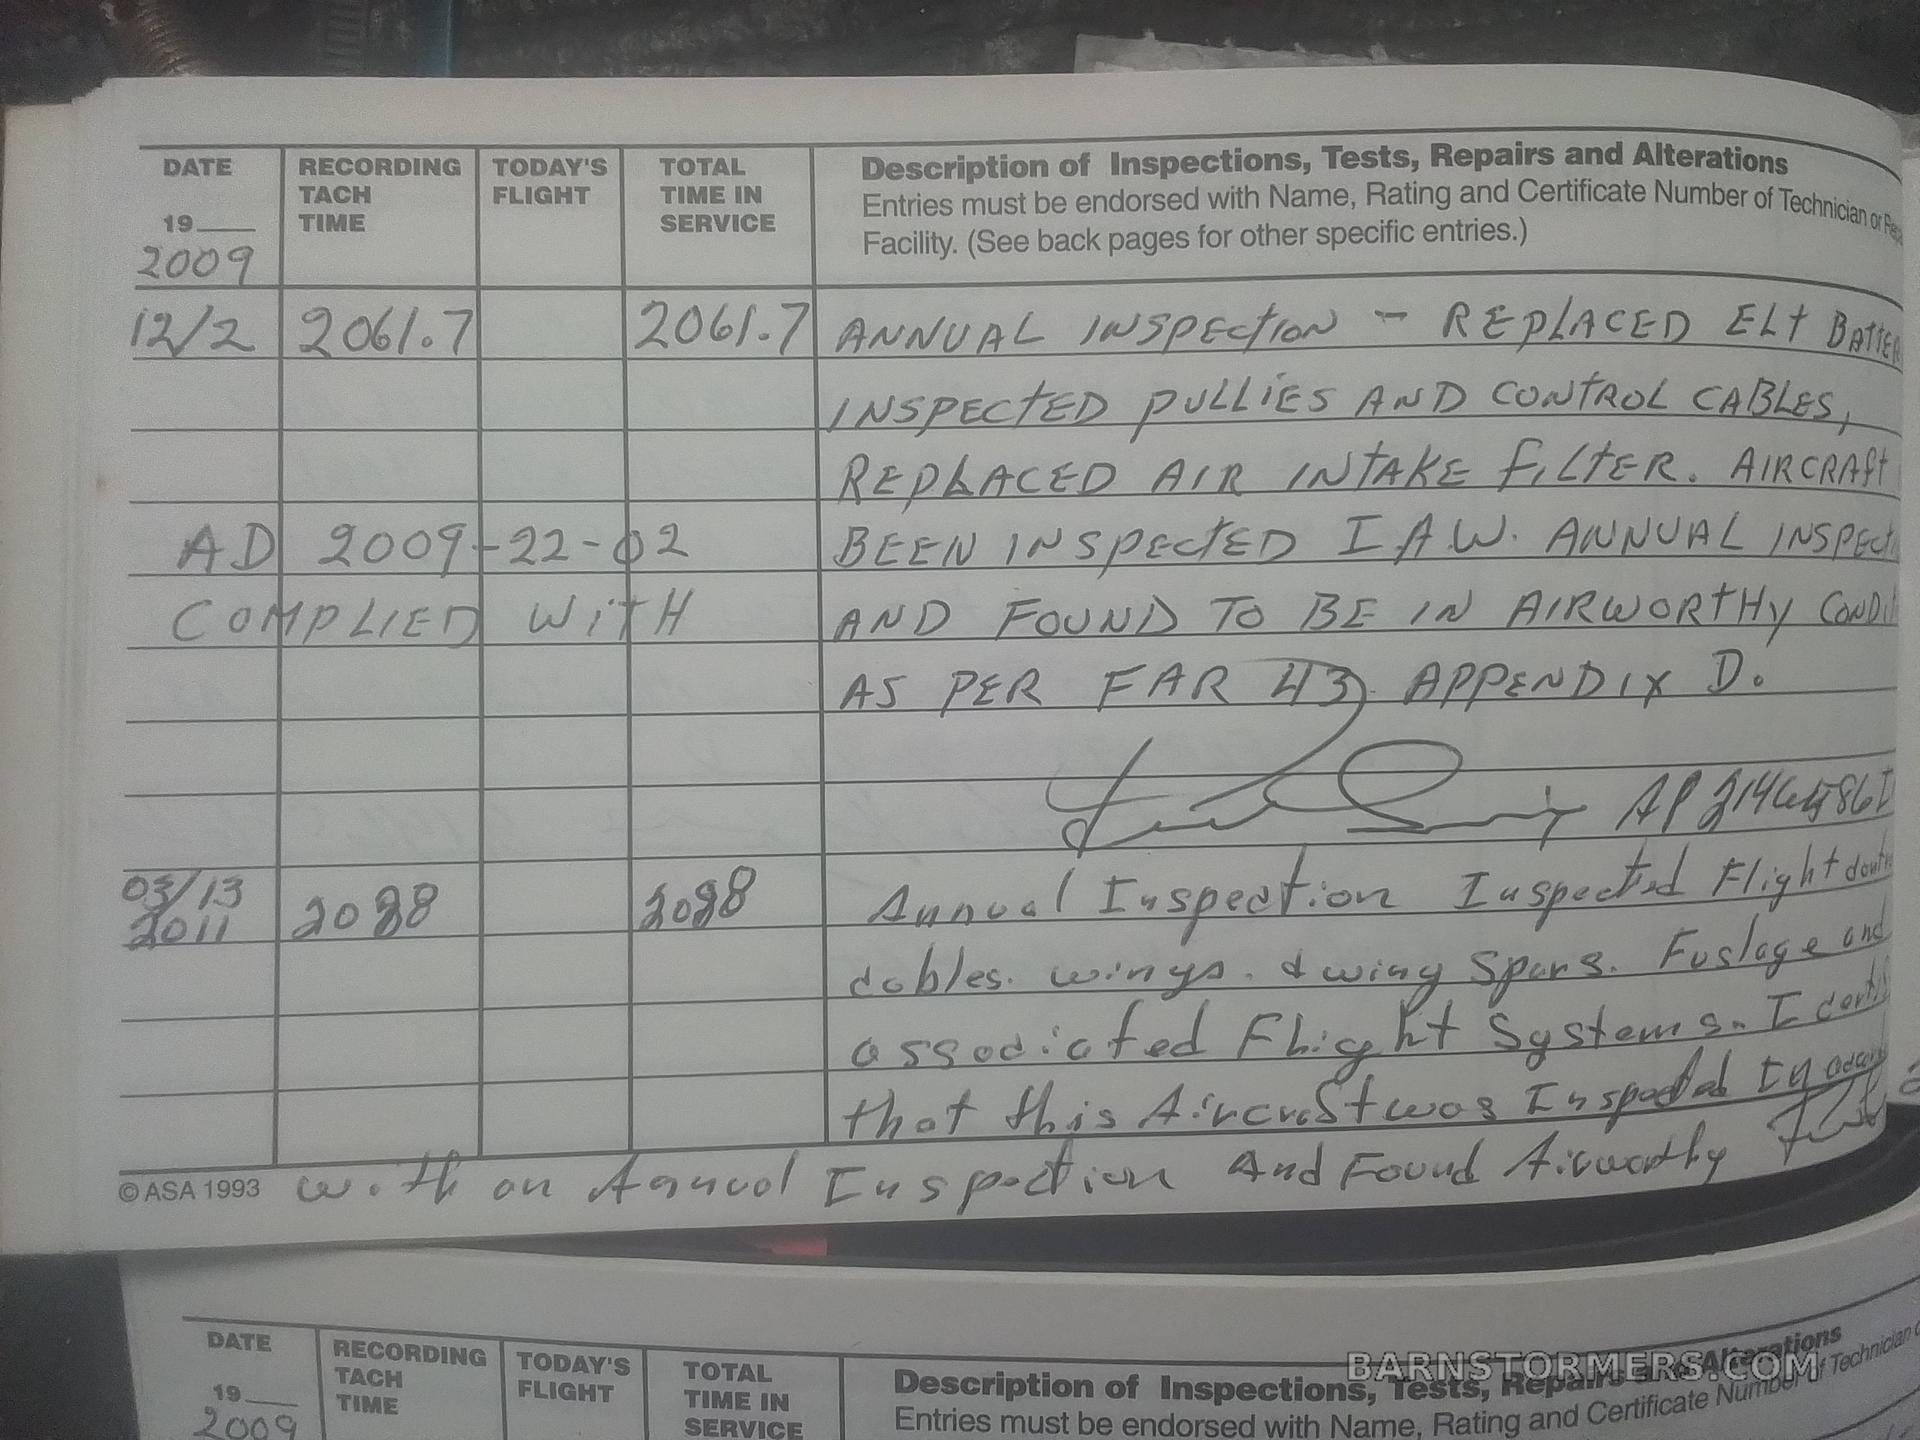 DATE RECORDING TODAY'S TOTAL Description of Inspections, Tests, Repairs and Alterations
TACH FLIGHT TIME IN Entries must be endorsed with Name, Rating and Certificate Number of Technician or
19___ TIME SERVICE Facility. (See back pages for other specific entries.)
2009
12/2 2061.7 2061.7 ANNUAL INSPECTION - REPLACED ELT BATTER
INSPECTED PULLIES AND CONTROL CABLES,
REPLACED AIR INTAKE FILTER. AIRCRAFT
AD 2009-22-02 BEEN INSPECTED I.A.W. ANNUAL INSPECT
COMPLIED WITH AND FOUND TO BE IN AIRWORTHY CONDI
AS PER FAR 43 APPENDIX D.
AP
03/13 2011 Annual Inspection Inspected Flight
cables. wings. & wing Spars. Fuslage and
associated Flight Systems. I
that this Aircraft was Inspected In
© ASA 1993 with an Annual Inspection And Found Airworthy
BARNSTORMERS.COM
DATE RECORDING TODAY'S TOTAL Description of Inspections, Tests, Repairs and Alterations
TACH FLIGHT TIME IN Entries must be endorsed with Name, Rating and Certificate Number of Technician
19___ TIME SERVICE
2009